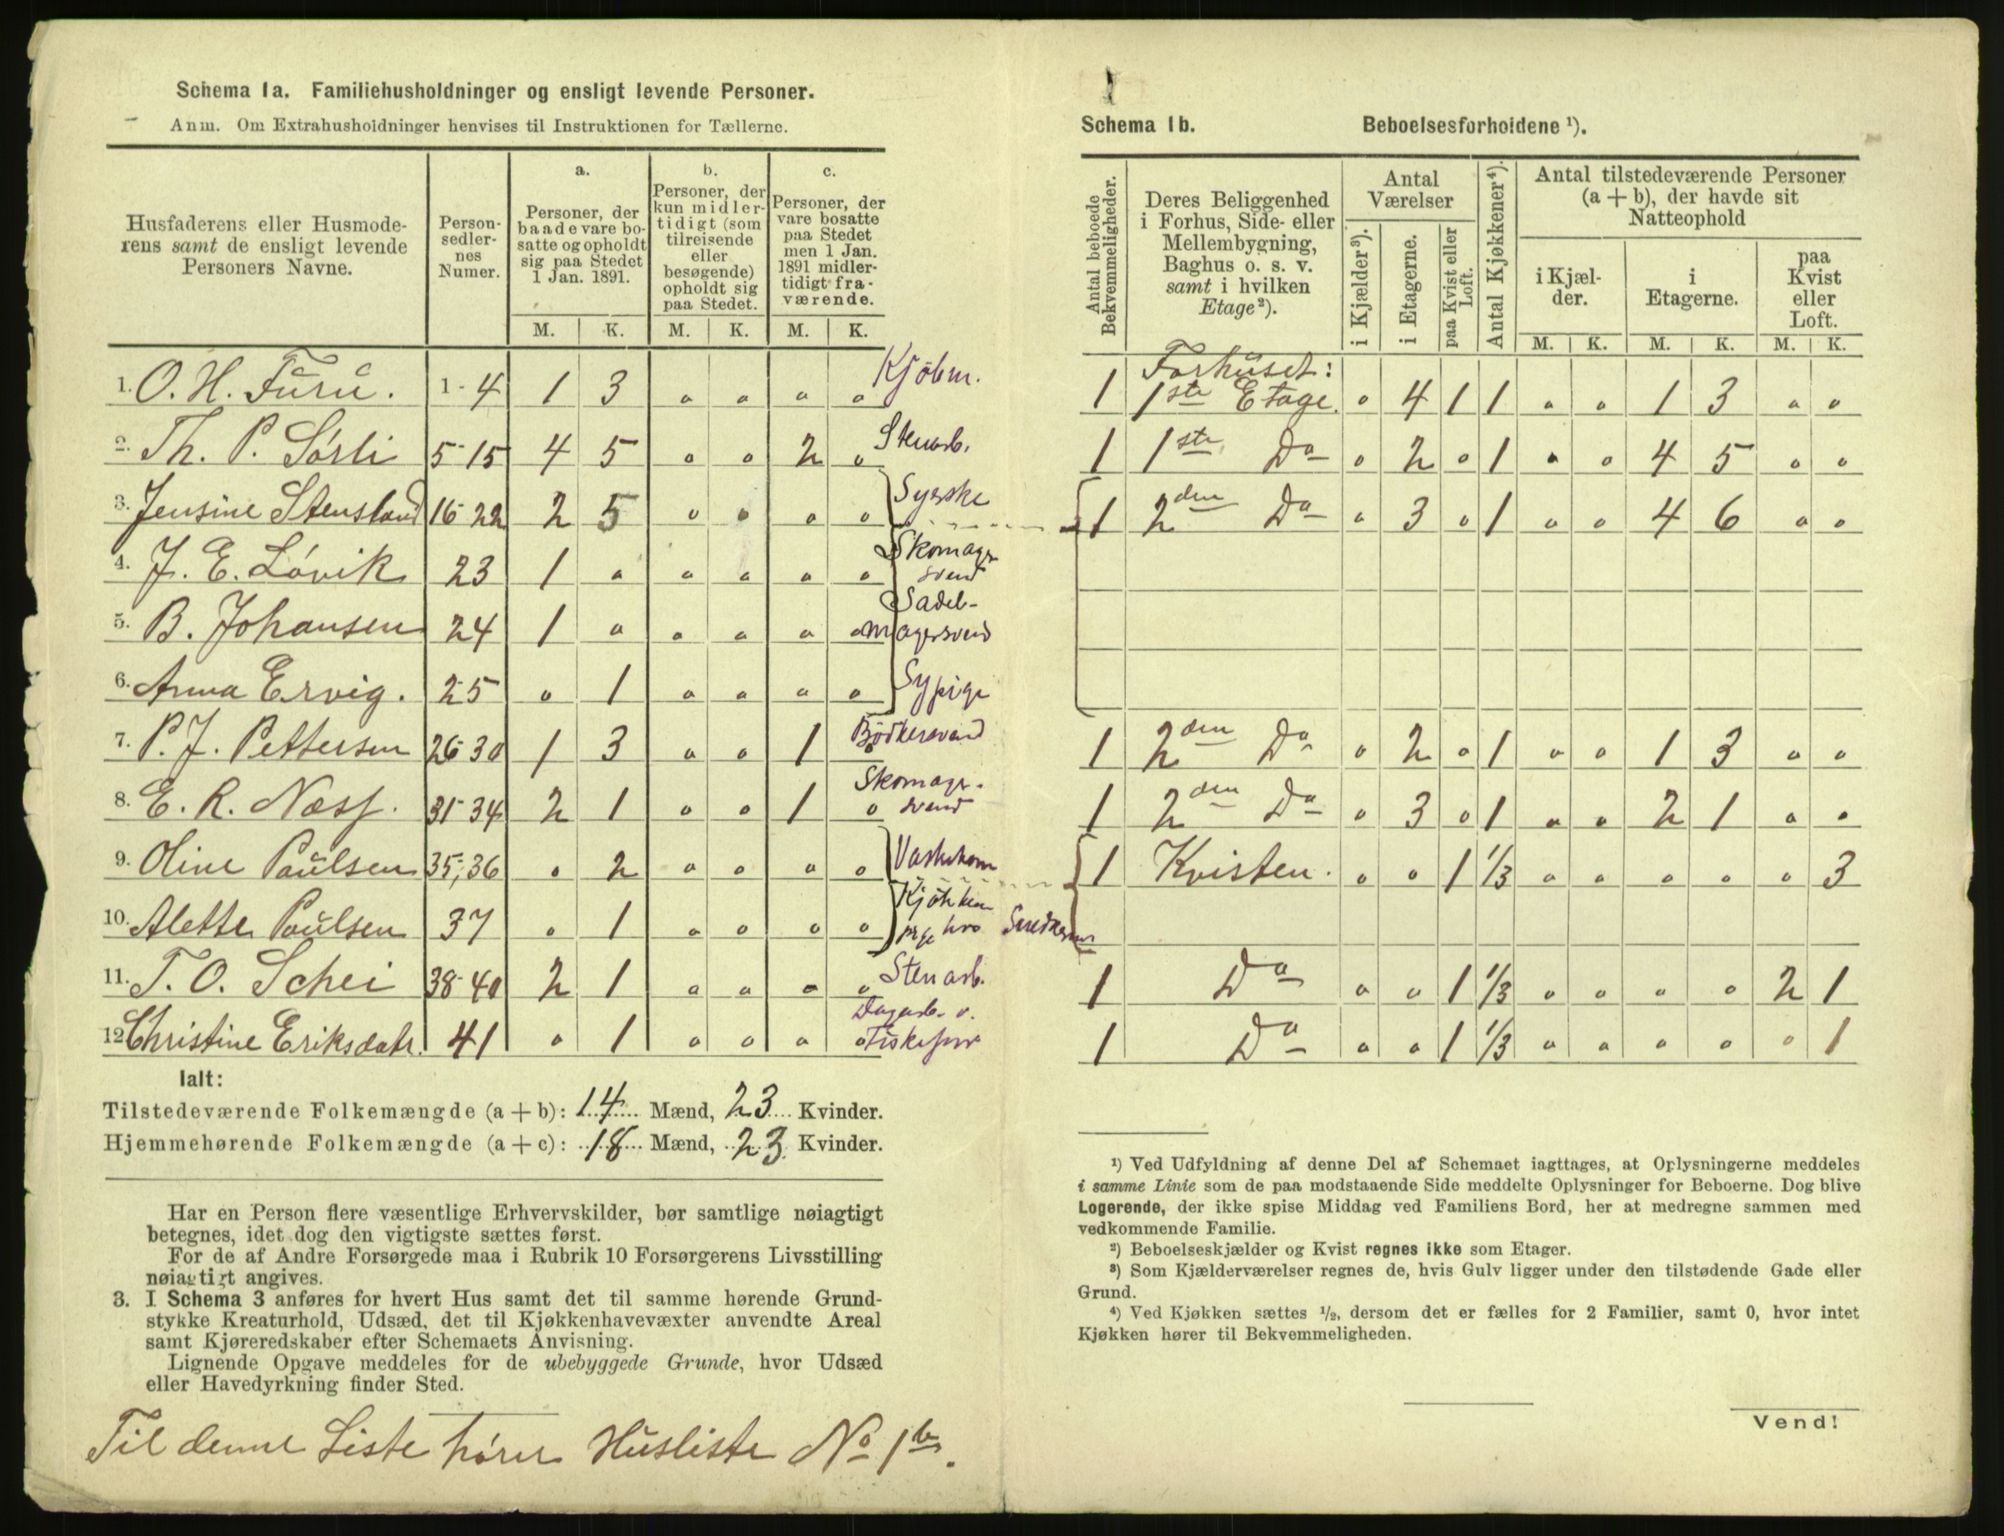 Schema 1a. Familiehusholdninger og ensligt levende Personer.
Anm. Om Extrahusholdninger henvises til Instruktionen for Tællerne.
Husfaderens eller Husmoderens samt de ensligt levende Personers Navne.
Personsedlernes Numer.
a. Personer, der baade vare bosatte og opholdt sig paa Stedet 1 Jan. 1891.
b. Personer, der kun midlertidigt (som tilreisende eller besøgende) opholdt sig paa Stedet.
c. Personer, der vare bosatte paa Stedet men 1 Jan. 1891 midlertidigt fraværende.
M. K. M. K. M. K.
1. O. H. Furu. 1-4 1 3 " " " " Kjöbm.
2. Th. P. Sørli 5-15 4 5 " " 2 " Stenarb.
3. Jensine Stensland 16-22 2 5 " " " " Syerske
4. J. E. Løvik 23 1 " " " " " Skomagersvend
5. B. Johansen 24 1 " " " " " Sadelmagersvend
6. Anna Ervig. 25 " 1 " " " " Sypige
7. P. J. Pettersen 26-30 1 3 " " 1 " Bödkersvend
8. E. R. Næss. 31-34 2 1 " " 1 " Skomagersvend
9. Oline Paulsen 35, 36 " 2 " " " " Vaskekone
10. Alette Paulsen 37 " 1 " " " " Kjökken pige hos
11. T. O. Schei 38-40 2 1 " " " " Stenarb.
12. Christine Eriksdatr. 41 " 1 " " " " Dagarb. o.
Ialt:
Tilstedeværende Folkemængde (a + b): 14 Mænd, 23 Kvinder.
Hjemmehørende Folkemængde (a + c): 18 Mænd, 23 Kvinder.
Har en Person flere væsentlige Erhvervskilder, bør samtlige nøiagtigt
betegnes, idet dog den vigtigste sættes først.
For de af Andre Forsørgede maa i Rubrik 10 Forsørgerens Livsstilling
nøiagtigt angives.
3. I Schema 3 anføres for hvert Hus samt det til samme hørende Grund-
stykke Kreaturhold, Udsæd, det til Kjøkkenhavevæxter anvendte Areal
samt Kjøreredskaber efter Schemaets Anvisning.
Lignende Opgave meddeles for de ubebyggede Grunde, hvor Udsæd
eller Havedyrkning finder Sted.
Til denne Liste hører Husliste No 1b.
Schema 1b. Beboelsesforholdene ¹).
Antal beboede Bekvemmeligheder.
Deres Beliggenhed i Forhus, Side- eller Mellembygning, Baghus o. s. v. samt i hvilken Etage²).
Antal Værelser
i Kjælder³).
i Etagerne.
paa Kvist eller Loft.
Antal Kjøkkener⁴).
Antal tilstedeværende Personer (a + b), der havde sit Natteophold
i Kjælder.
i Etagerne.
paa Kvist eller Loft.
M. K. M. K. M. K.
Forhuset:
1 1ste Etage. " 4 1 1 " " 1 3 " "
1 1ste Do " 2 " 1 " " 4 5 " "
1 2den Do " 3 " 1 " " 4 6 " "
1 2den Do " 2 " 1 " " 1 3 " "
1 2den Do " 3 " 1 " " 2 1 " "
1 Kvisten. " " 1 1/3 " " " " " 3
1 Do " " 1 1/3 " " " " 2 1
1 Do " " 1 1/3 " " " " " 1
¹) Ved Udfyldning af denne Del af Schemaet iagttages, at Oplysningerne meddeles
i samme Linie som de paa modstaaende Side meddelte Oplysninger for Beboerne. Dog blive
Logerende, der ikke spise Middag ved Familiens Bord, her at medregne sammen med
vedkommende Familie.
²) Beboelseskjælder og Kvist regnes ikke som Etager.
³) Som Kjælderværelser regnes de, hvis Gulv ligger under den tilstødende Gade eller
Grund.
⁴) Ved Kjøkken sættes ½, dersom det er fælles for 2 Familier, samt 0, hvor intet
Kjøkken hører til Bekvemmeligheden.
Vend!